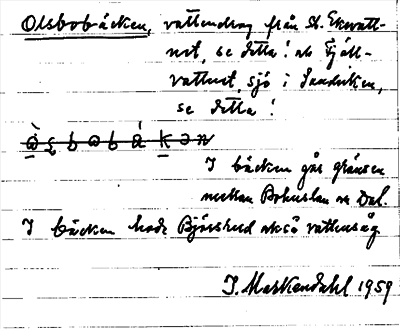 Olsbobäcken, vattendrag från St. Ekevatt-
net, se detta! till Fjäll-
vattnet, sjö i Sandviken,
se detta!
I bäcken går gränsen
mellan Bohuslän och Dal.
I bäcken hade Björsrud också vattensåg
J. Markendahl 1959